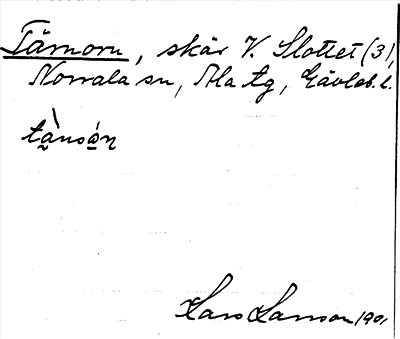 Tärnorn, skär V. Slottet (3),
Norrala sn, Ala tg, Gävleb. l.
Lars Larsson 1901